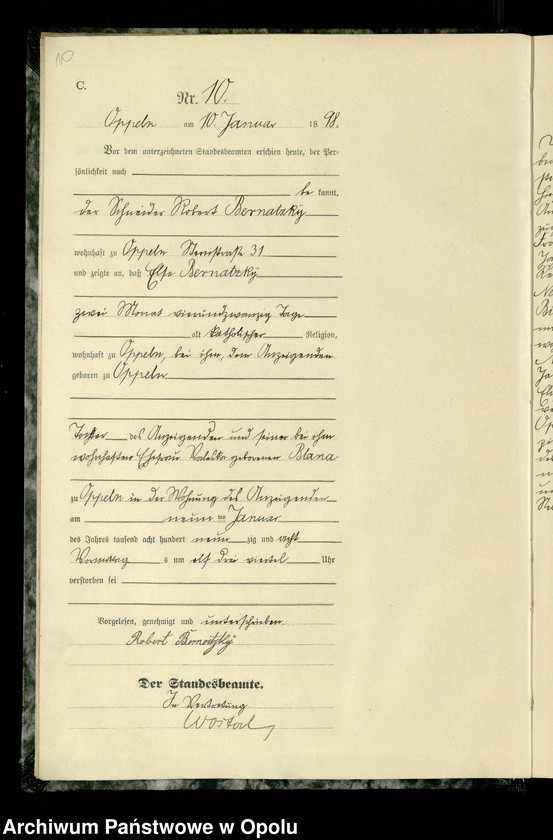 10
C.
Nr. 10.
Oppeln am 10. Januar 1898.
Vor dem unterzeichneten Standesbeamten erschien heute, der Per-
sönlichkeit nach
be kannt,
der Schneider Robert Bernatzky
wohnhaft zu Oppeln Sternstraße 31
und zeigte an, daß Else Bernatzky
zwei Monat vierundzwanzig Tage
alt katholischer Religion,
wohnhaft zu Oppeln, bei ihm, dem Anzeigenden
geboren zu Oppeln
Tochter des Anzeigenden und seiner bei ihm
wohnhaften Ehefrau Valeska geborenen
zu Oppeln in der Wohnung des Anzeigenden
am neun ten Januar
des Jahres tausend acht hundert neun zig und acht
Vormittag s um elf drei viertel Uhr
verstorben sei
Vorgelesen, genehmigt und unterschrieben.
Robert Bernatzky
Der Standesbeamte.
In Vertretung
Wostal
Archiwum Państwowe w Opolu